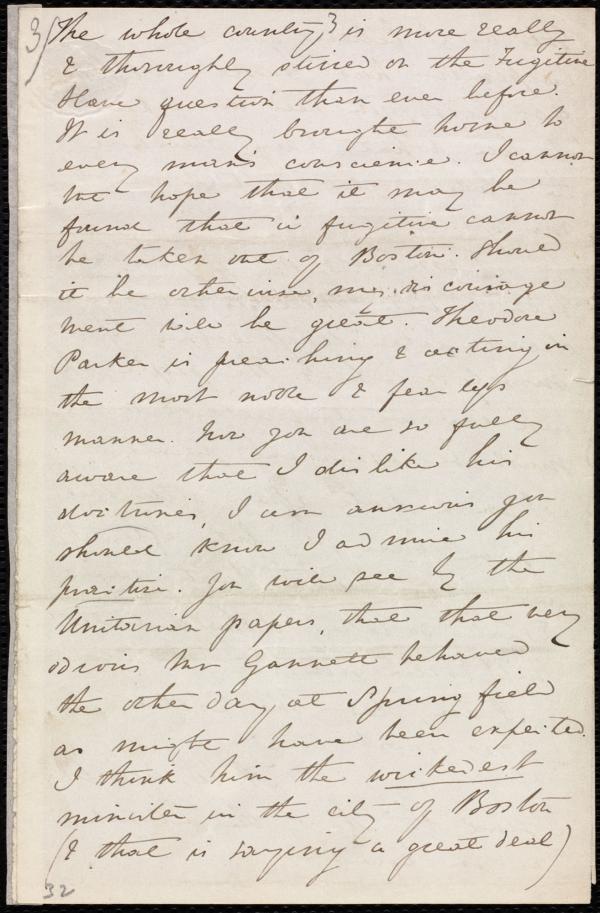 3/ The whole country is more really
& thoroughly stirred on the Fugitive
Slave question than ever before.
It is really brought home to
every man's conscience. I cannot
but hope that it may be
found that a fugitive cannot
be taken out of Boston. Should
it be otherwise, my discourage
ment will be great. Theodore
Parker is preaching & acting in
the most noble & fearless
manner. Now you are so fully
aware that I dislike his
doctrines, I am anxious you
should know I admire his
practice. You will see by the
Unitarian papers, that that very
odious Mr Gannett behaved
the other day, at Springfield
as might have been expected.
I think him the wickedest
minister in the city of Boston
(& that is saying a great deal)
32